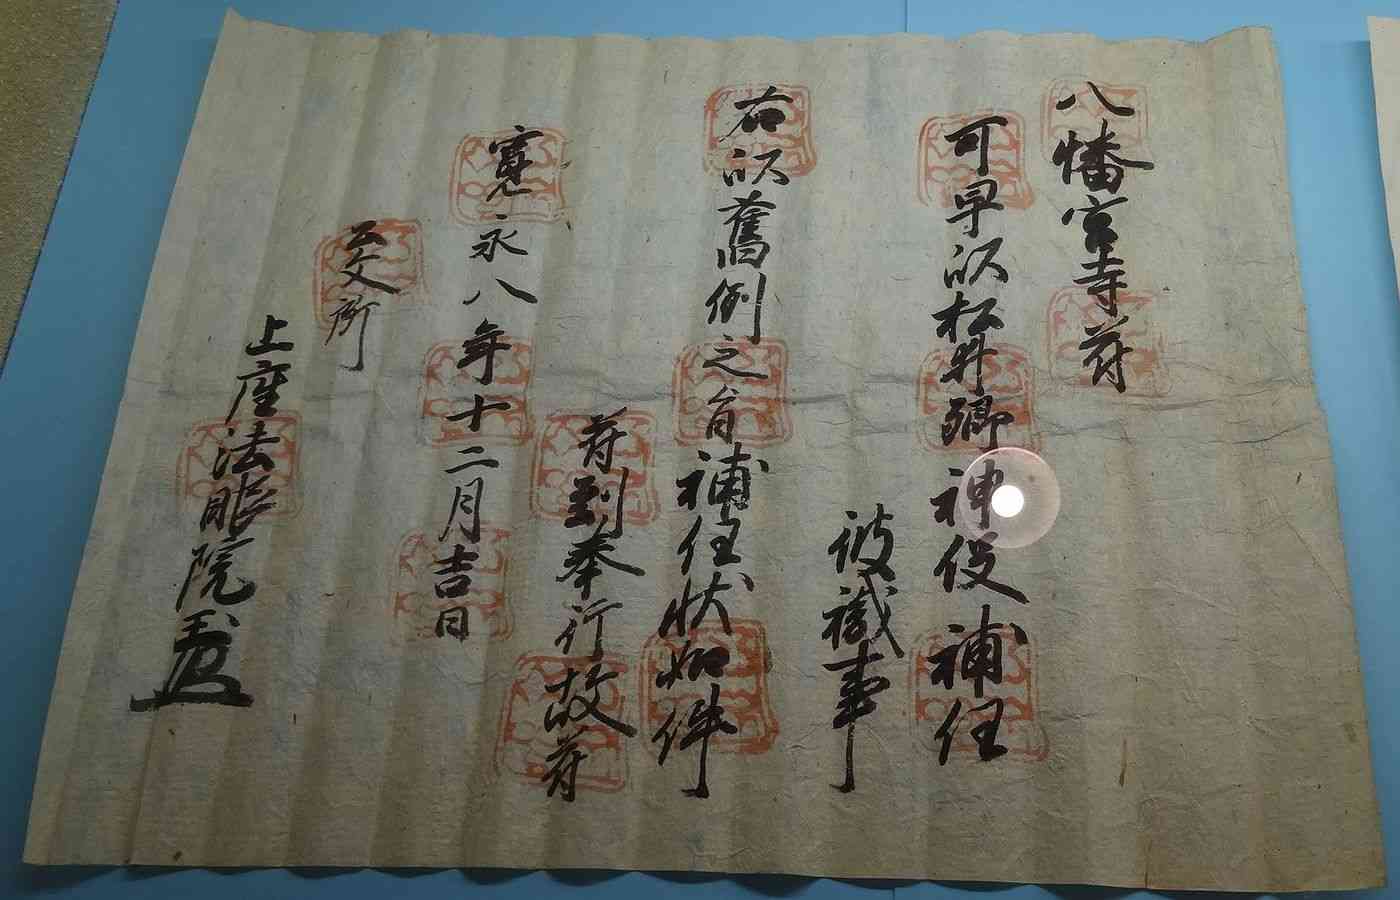 八幡宮寺符
可早以松井郷神役補任
彼職事
右以舊例之旨補任状如件
符到奉行故符
寛永八年十二月吉日
公文所
上座法眼院